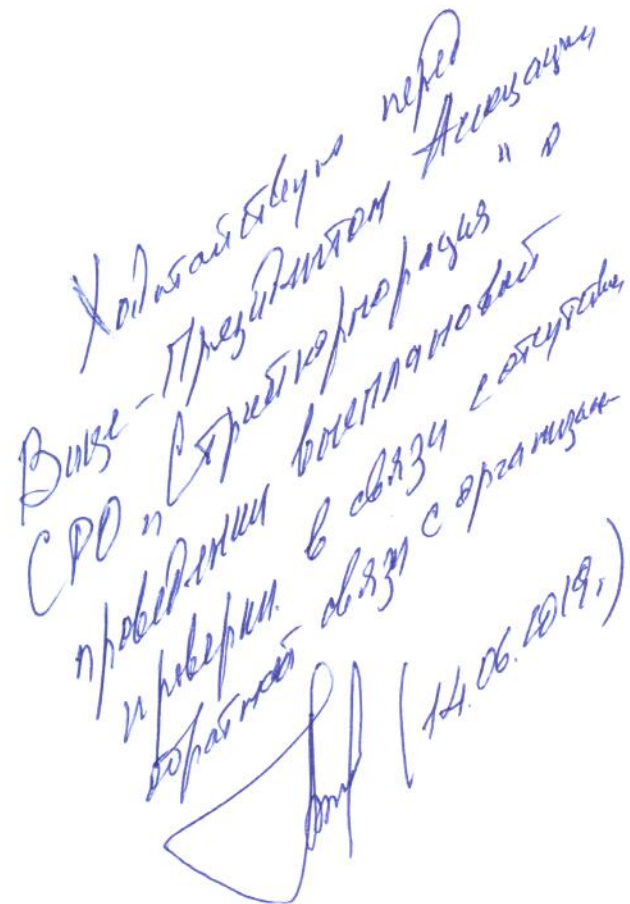 Ходатайствую перед
Вице-Президентом Ассоциации
СРО "Стройкорпорация" о
проведении внеплановой
проверки в связи с отсутствием
обратной связи с организац
(14.06.2019г.)